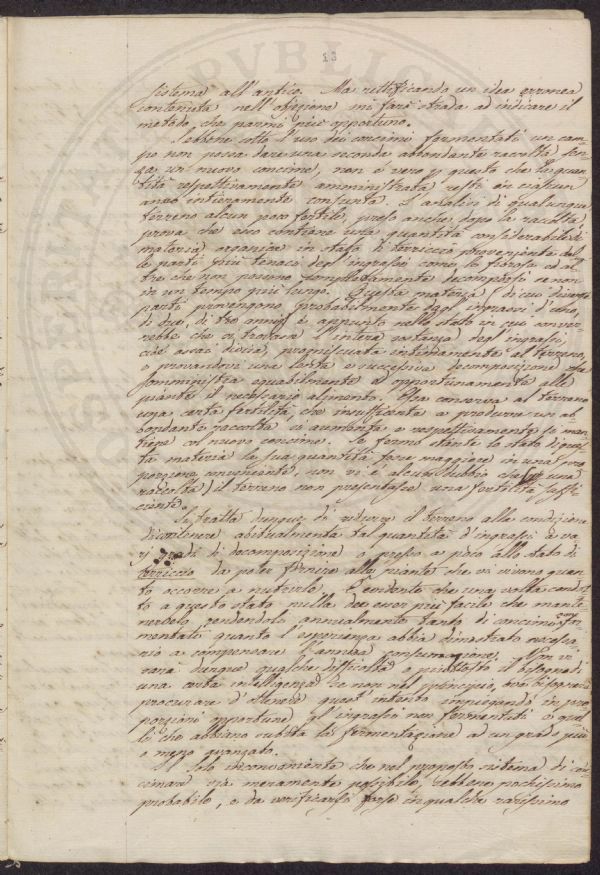 23
sistema all'antico. Ma rettificando un idea erronea
contenuta nell'obiezione mi farò strada ad indicare il
metodo che parmi più opportuno.
Sebbene sotto l'uso dei concimi fermentati un cam-
po non possa dare una seconda abbondante raccolta sen-
za un nuovo concime, non è vero per questo che la quan-
tità rispettivamente amministrata resti in ciascun
anno intieramente consunta. L'analisi di qualunque
terreno alcun poco fertile, preso anche dopo la raccolta
prova che esso contiene una quantità considerabile di
materia organica in stato di terriccio proveniente dal-
le parti più tenaci degl'ingrassi come le fibrose ed al-
tre che non possono completamente decomporsi se non
in un tempo più lungo. Questa materia (di cui diverse
parti provengono probabilmente dagl'ingrassi d'uno,
di due, di tre anni) è appunto nello stato in cui conver-
rebbe che si trovasse l'intera sostanza degl'ingrassi,
cioè assai divisa, promiscuata intimamente al terreno,
e provandovi una lenta e successiva decomposizione
somministra equabilmente ed opportunamente alle
piante il necessario alimento. Essa conserva al terreno
una certa fertilità che insufficiente a produrre un ab-
bondante raccolta si aumenta e rispettivamente si man-
tiene col nuovo concime. Se fermo stante lo stato di que-
sta materia la sua quantità fosse maggiore in una pro-
porzione conveniente, non vi è alcun dubbio che (dopo una
raccolta) il terreno non presentasse una fertilità suffi-
ciente.
Si tratta dunque di ridurre il terreno alla condizione
di contenere abitualmente tal quantità d'ingrassi a va-
rj gradi di decomposizione o presso a poco allo stato di
terriccio da poter fornire alle piante che vi vivono quan-
to occorre a nutrirle. È evidente che una volta condot-
to a questo stato nulla dee esser più facile che mante-
nervelo, rendendolo annualmente tanto di concime fer-
mentato quanto l'esperienza abbia dimostrato necessa-
rio a compensare l'annua consumazione. Non vi
sarà dunque qualche difficoltà o piuttosto il bisogno di
una certa intelligenza se non nel principio, ove bisognerà
procurare d'ottenere quest'intento impiegando in pro-
porzioni opportune gl'ingrassi non fermentati o quel-
li che abbiano subita la fermentazione ad un grado più
o meno avanzato.
Solo inconveniente che nel proposto sistema di con-
cimare sia meramente possibile, sebbene pochissimo
probabile, e da verificarsi forse in qualche rarissimo